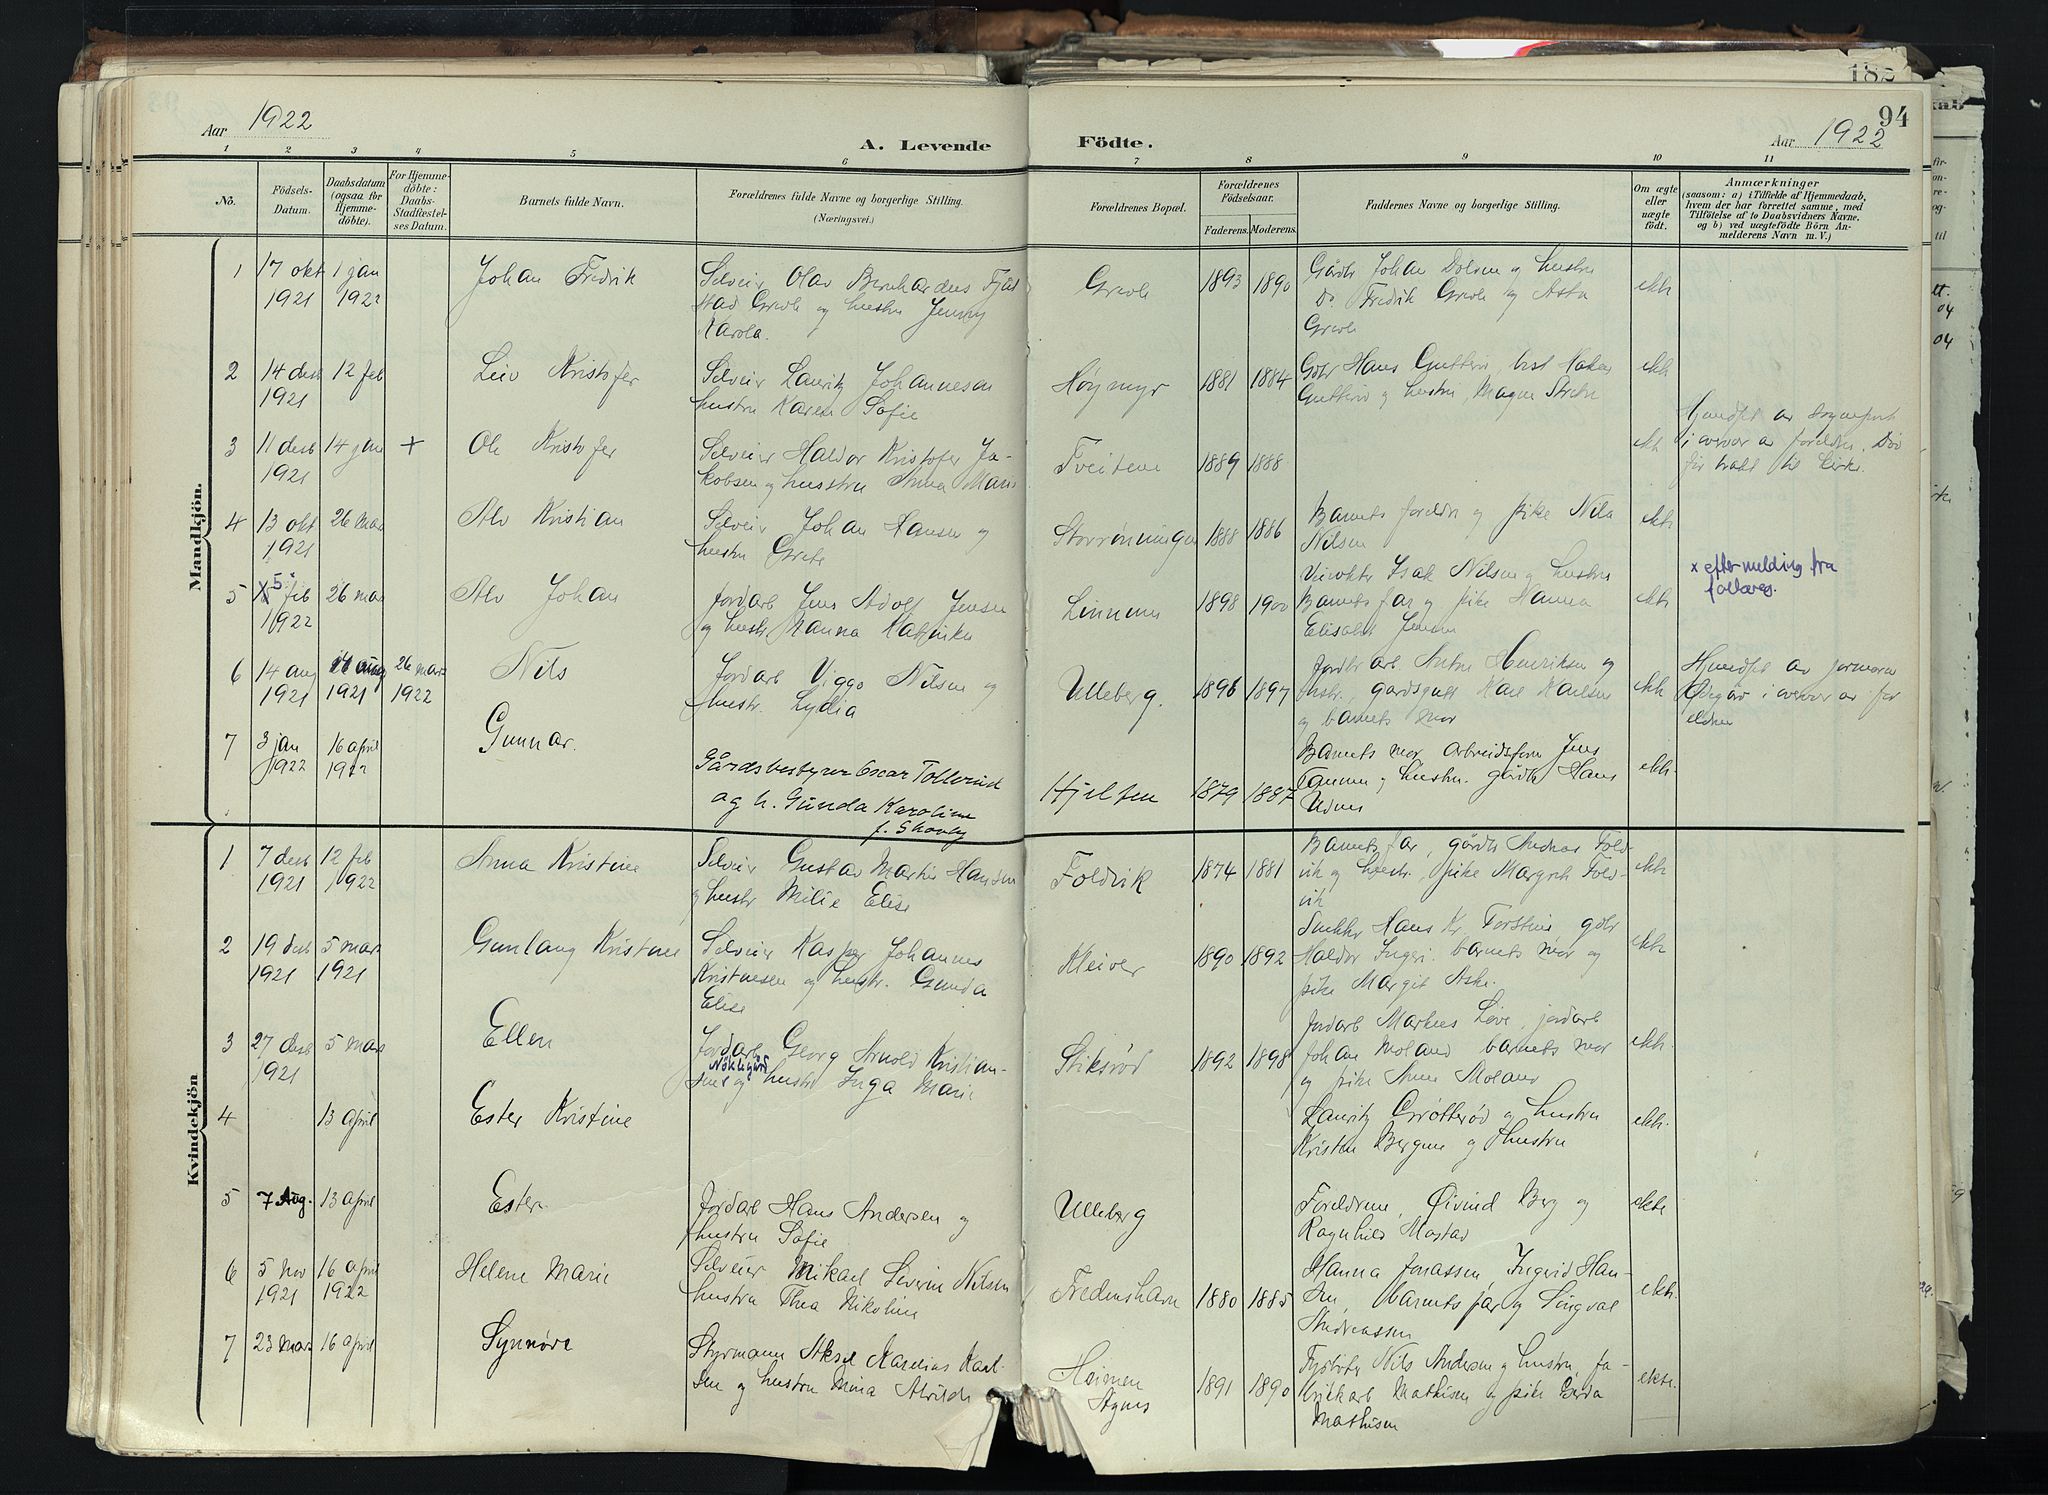 182
94
Aar 1922
A. Levende Födte.
Aar 1922
1 2 3 4 5 6 7 8 9 10 11
No.
Födsels-
Datum.
Daabsdatum
(ogsaa for
Hjemme-
döbte).
For Hjemme-
döbte:
Daabs-
Stadfæstel-
ses Datum.
Barnets fulde Navn.
Forældrenes fulde Navne og borgerlige Stilling.
(Næringsvei.)
Forældrenes Bopæl.
Forældrenes
Födselsaar.
Faderens. Moderens.
Faddernes Navne og borgerlige Stilling.
Om ægte
eller
uægte
födt.
Anmærkninger
(saasom: a) i Tilfælde af Hjemmedaab,
hvem der har forrettet samme, med
Tilföielse af to Daabsvidners Navne.
og b) ved uægtefödte Börn An-
melderens Navn m. V.)
Mandkjön.
1 17 okt 1921
1 jan 1922
Johan Fredrik
Selveier Olav Bernhardus
og hustru Jenny
Karola.
1893 1890
Gårdbr Johan og hustru
Do. Fredrik og Asta
ekte
2 14 desb 1921
12 feb
Leiv Kristofer
Selveier Lauritz Johannesen
hustru Karen Sofie
Høymyr
1881 1884
Gdbr Hans
og hustru, Magna
ekte
3 11 desb 1921
14 jan
+
Ole Kristofer
Selveier Haldor Kristofer Ja-
kobsen og hustru Anna Marie
Tveitene
1889 1888
ekte
Hjemdøpt av sogneprest
i overvær av foreldre. Død
før bragt til kirke.
4 13 okt 1921
26 mars
Alv Kristian
Selveier Johan Hansen og
hustru Grete
Storrønningen
1888 1886
Barnets foreldre og pike Nila
Nilsen
ekte
5 x 5 feb 1922
26 mars
Alv Johan
Jordarb Jens Adolf Jensen
og hustr. Hanna Katrinka
Linnum
1898 1900
Isak Nilsen og hustru
Barnets far og pike Hanna
Elisabet Jensen
ekte
x efter melding fra
folkereg.
6 14 aug 1921
14 aug 1921
26 mars 1922
Nils
Jordarb Viggo Nilsen og
hustr. Lydia
Ulleberg.
1896 1897
Jordbrarb. Anton Henriksen og
hustr., gårdsgutt Karl Karlsen
og barnets mor
ekte
Hjemdøpt av jormor
Ødegård i overvær av for
eldrene
7 3 jan 1922
16 april 1922
Gunnar.
Gårdsbestyrer Oscar Tollerud
og h. Gunda Karoline
f. Skovly
Hjelten
1879 1887
Barnets mor, arbeidsform Jens
og hustru. gårdbr Hans
Udnes
ekte
Kvindekjön
1 7 desb 1921
12 feb 1922
Anna Kristine
Selveier Gustav Martin Hansen
og hustr Milie Elise
Foldvik
1874 1881
Barnets far, gårdbr Andreas Fold-
vik og hustr., pike Margret Fold-
vik
ekte
2 19 desb 1921
5 mars 1921
Gunlaug Kristine
Selveier Kasper Johannes
Kristensen og hustr. Gunda
Elise
Kleiver
1890 1892
Snekker Hans Kr. gdbr
Haldor barnets mor og
pike Margit Aske.
ekte
3 27 desb 1921
5 mars
Ellen
Jordarb Georg Arnold Kristian-
Nøkligård
sen og hustru Inga Marie
Stiksrød
1892 1898
Jordarb Markus Løve, jordarb
Johan Moland barnets mor
og pike Anna Moland
ekte.
4
13 april
Ester Kristine
Lauritz Grøtterød og hustru
Kristen Bergene og hustru
ekte.
5 7 Aug.
13 april
Ester
Jordarb Hans Andersen og
hustru Sofie
Ulleberg
Foreldrene, Øivind Berg og
Ragnhild Mastad
ekte
6 5 nov 1921
16 april 1922
Helene Marie
Selveier Mikael Severin Nilsen
hustru Thea Nikoline
Fredenshavn
1880 1885
Hanna Jonassen, Ingerid Han-
sen, barnets far og Singval
Andreassen
ekte.
7 23 mars
16 april
Synnöve
Styrmann Aksel Karelius Karl-
sen og hustru Mina Alvilde
Heimen
Agnes
1891 1890
Fyrbøter Nils Andersen og hustru, fa-
brikkarb Mathisen og pike Gerda
Mathisen
ekte.